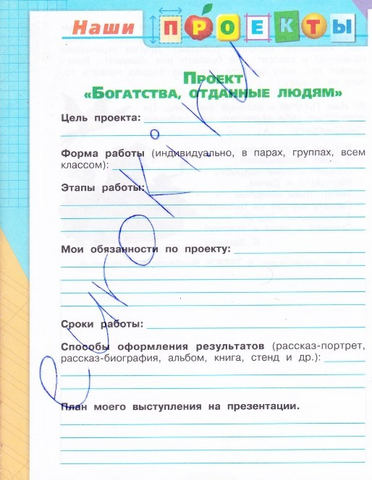 Наши ПРОЕКТЫ
ПРОЕКТ
«БОГАТСТВА, ОТДАННЫЕ ЛЮДЯМ»
Цель проекта:
Форма работы (индивидуально, в парах, группах, всем
классом):
Этапы работы:
Мои обязанности по проекту:
Сроки работы:
Способы оформления результатов (рассказ-портрет,
рассказ-биография, альбом, книга, стенд и др.):
План моего выступления на презентации.
eurokiru